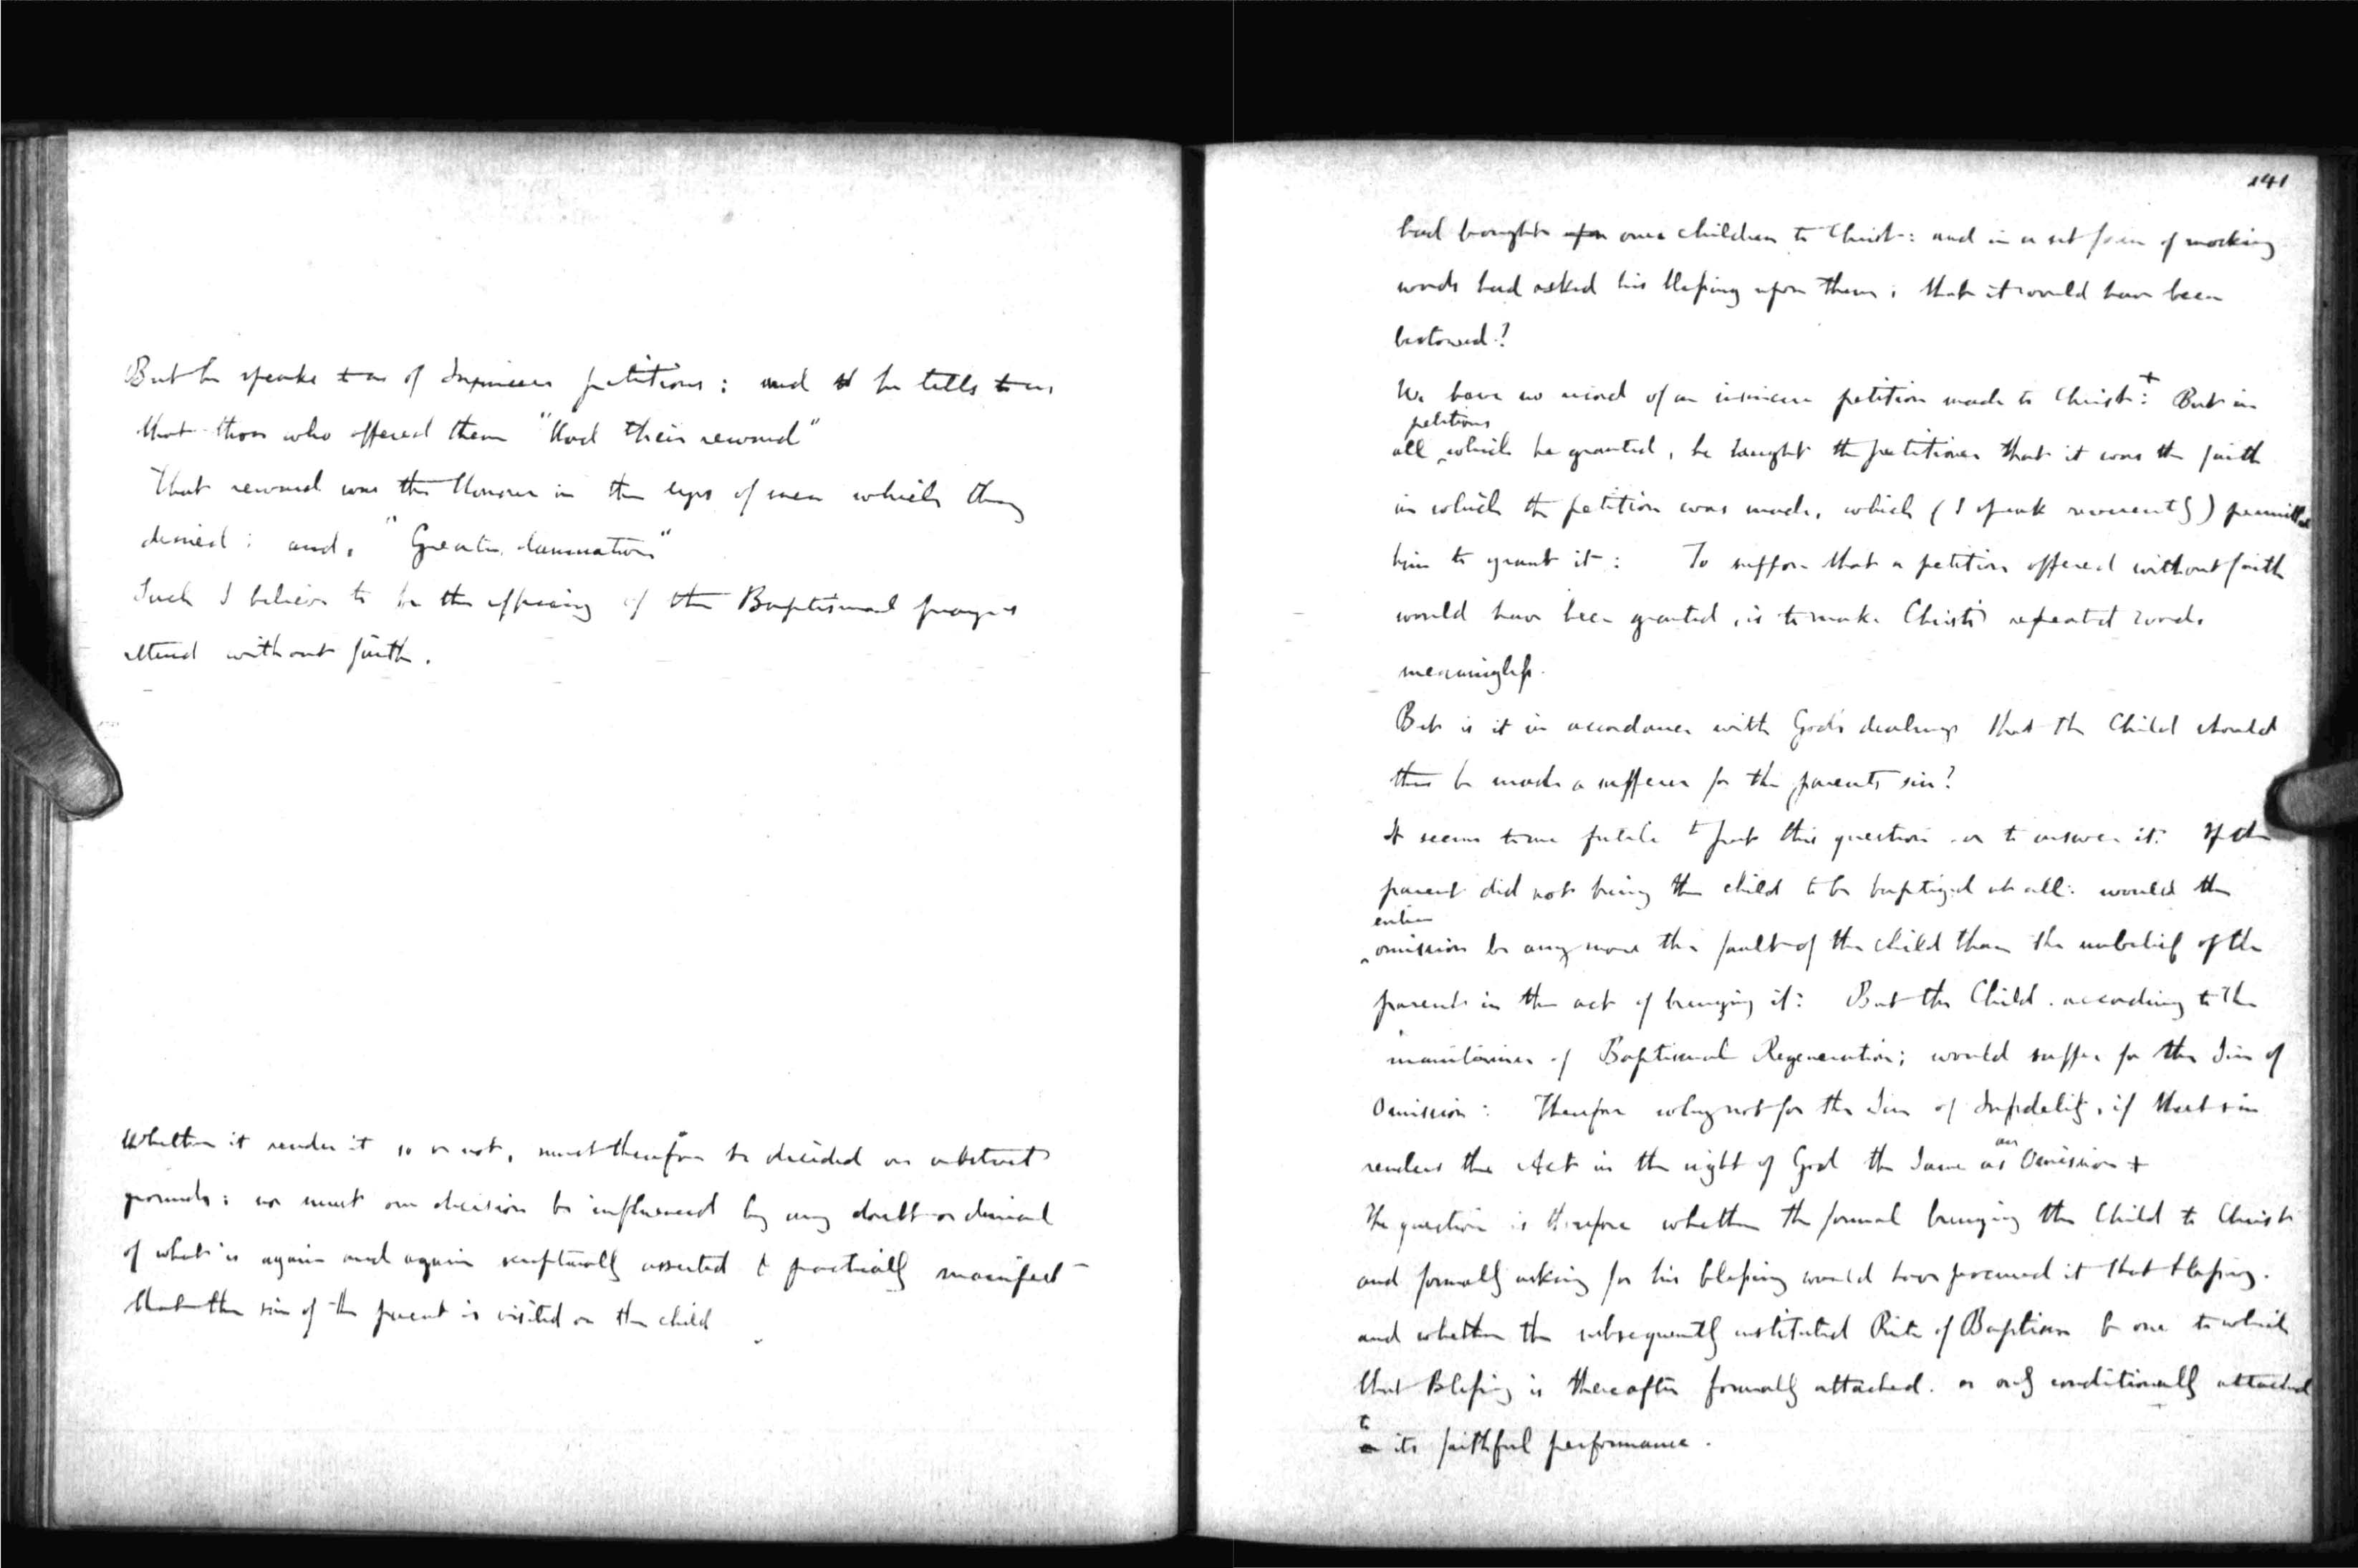 But he speaks to us of Insincere petitions : and he tells to us
that those who offered them "Had their reward"
That reward was the Honour in the eyes of men which they
desired : and, "Greater damnation"
Such I believe to be the efficacy of the Baptismal prayers
uttered without faith.
Whether it render it so or not, must therefore be decided on abstract
grounds : nor must our decision be influenced by any doubt or denial
of what is again and again scripturally asserted & practically manifest
that the sin of the parent is visited on the child
141
had brought upon once children to Christ : and in a set form of mocking
words had asked his blessing upon them ; that it would have been
bestowed?
We have no record of an insincere petition made to Christ + : But in
petitions
all which he granted, he taught the petitioner that it was the faith
in which the petition was made, which (I speak reverently) permitted
him to grant it : To suppose that a petition offered without faith
would have been granted, is to make Christs repeated words
meaningless.
But is it in accordance with Gods dealings that the Child should
thus be made a sufferer for the parents sin?
It seems to me futile to put this question or to answer it : If the
parent did not bring the child to be baptized at all : would the
entire
omission be any more the fault of the child than the unbelief of the
parent in the act of bringing it : But the Child according to the
maintainers of Baptismal Regeneration ; would suffer for the Sin of
Omission : Therefore why not for the Sin of Infidelity, if that sin
an
renders the Act in the sight of God the Same as Omission +
The question is therefore whether the formal bringing the Child to Christ
and formally asking for his blessing would have procured it that blessing.
and whether the subsequently instituted Rite of Baptism be one to which
that Blessing is thereafter formally attached. or only conditionally attached
to
on its faithful performance.